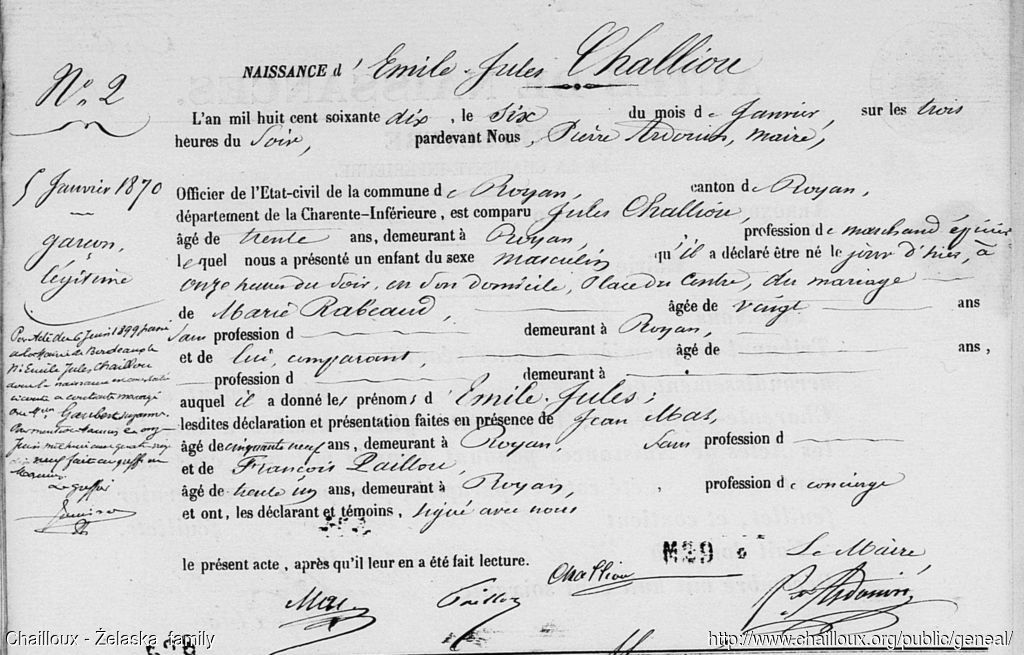 N° 2
NAISSANCE d' Emile Jules Challiou
L'an mil huit cent soixante dix, le six du mois de Janvier, sur les trois
heures du Soir, pardevant Nous, Pierre Ardouin, maire,
5 Janvier 1870
garçon,
légitime
Officier de l'Etat-civil de la commune de Royan, canton de Royan,
département de la Charente-Inférieure, est comparu Jules Challiou,
âgé de trente ans, demeurant à Royan, profession de marchand épicier
lequel nous a présenté un enfant du sexe masculin qu'il a déclaré être né le jour d'hier, à
onze heures du Soir, en Son domicile, Place du Centre, du mariage
de Marie Rabeaud, âgée de vingt ans
Sans profession d demeurant à Royan,
et de lui, comparant, âgé de ans,
profession d demeurant à
auquel il a donné les prénoms d'Emile Jules;
lesdites déclaration et présentation faites en présence de Jean Mat,
âgé de cinquante neuf ans, demeurant à Royan Sans profession d
et de François Paillou,
âgé de trente un ans, demeurant à Royan, profession de concierge
et ont, les déclarant et témoins, signé avec nous
le présent acte, après qu'il leur en a été fait lecture.
Par Acte du 6 Juin 1899 passé
à la Mairie de Bordeaux le
Sr Emile Jules, Chaillou
dont la naissance est constatée
ci contre a contracté mariage
avec Mlle Gaubert
Le greffier
M29
Le Maire
Challiou
Paillou
Ardouin
Chailloux - Żelaska family
http://www.chailloux.org/public/geneal/